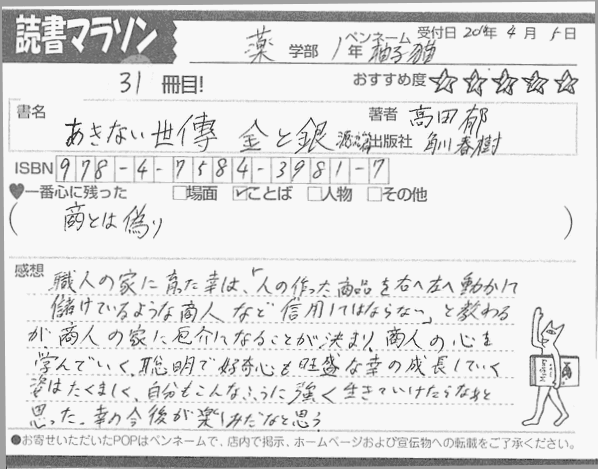 読書マラソン
薬 学部 1年 ペンネーム 柚子猫 受付日 2018年 4月 5日
31 冊目! おすすめ度 ☆☆☆☆☆
書名 あきない世傳 金と銀 源流篇
著者 高田郁
出版社 角川春樹
ISBN 978-4-7584-3981-7
♥一番心に残った □場面 ☑ことば □人物 □その他
( 商とは偽り )
感想
職人の家に育った幸は、「人の作った商品を右へ左へ動かして
儲けているような商人など信用してはならない」と教わる
が商人の家に厄介になることが決まり、商人の心を
学んでいく。聡明で好奇心も旺盛な幸の成長していく
姿はたくましく、自分もこんなふうに強く生きていけたらなぁと
思った。幸の今後が楽しみだなと思う
●お寄せいただいたPOPはペンネームで、店内で掲示、ホームページおよび宣伝物への転載をご了承ください。